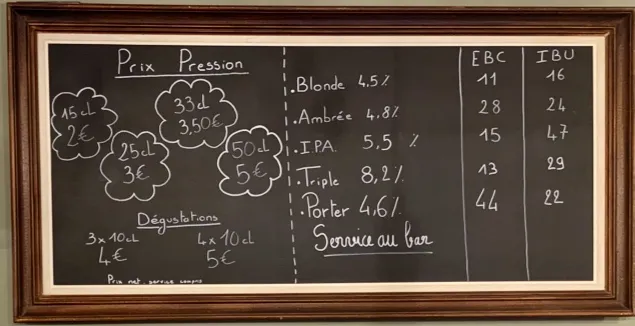 Prix Pression
15cl
2€
33cl
3,50€
25cl
3€
50cl
5€
Dégustations
3x10cl
4€
4x10cl
5€
Prix net service compris
EBC IBU
.Blonde 4,5% 11 16
.Ambrée 4,8% 28 24
.I.P.A. 5,5 % 15 47
.Triple 8,2% 13 29
.Porter 4,6% 44 22
Service au bar